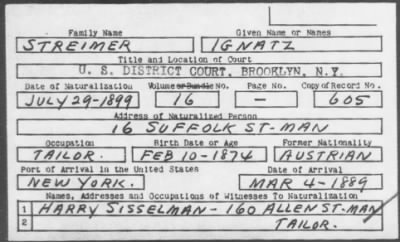 Family Name Given Name or Names
STREIMER IGNATZ
Title and Location of Court
U. S. DISTRICT COURT, BROOKLYN, N.Y.
Date of Naturalization Volume or Bundle No. Page No. Copy of Record No.
JULY 29-1899 16 — 605
Address of Naturalized Person
16 SUFFOLK ST-MAN
Occupation Birth Date or Age Former Nationality
TAILOR. FEB 10-1874 AUSTRIAN
Port of Arrival in the United States Date of Arrival
NEW YORK. MAR 4-1889
Names, Addresses and Occupations of Witnesses To Naturalization
1 HARRY SISSELMAN - 160 ALLEN ST-MAN
2 TAILOR.